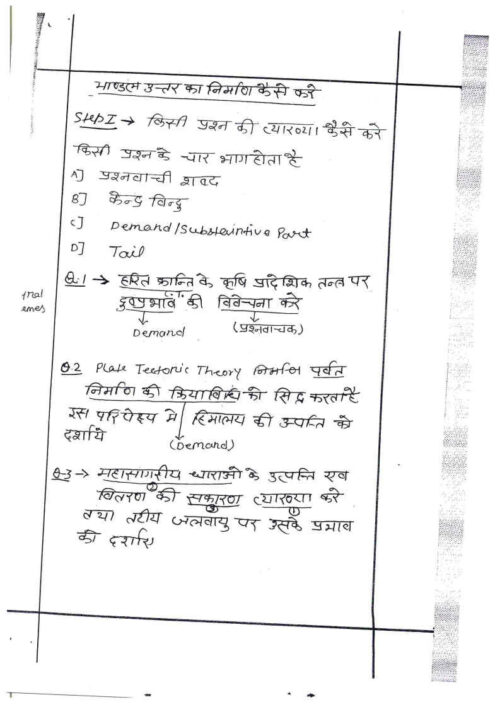 माण्डल उत्तर का निर्माण कैसे करे
Step I → किसी प्रश्न की व्याख्या कैसे करे
किसी प्रश्न के चार भाग होता है
A] प्रश्नवाची शब्द
B] केन्द्र विन्दु
C] Demand/Substaintive Part
D] Tail
Q.1 → हरित क्रान्ति के कृषि प्रादेशिक तन्त्र पर
दुष्प्रभावों की विवेचना करे
Demand (प्रश्नवाचक)
Q.2 Plate Tectonic Theory निर्माण पर्वत
निर्माण की क्रियाविधि को सिद्ध करता है
इस परिपेक्ष्य मे हिमालय की उत्पत्ति को
दर्शाये (Demand)
Q.3 → महासागरीय धाराओ के उत्पत्ति एव
वितरण की सकारण व्याख्या करे
तथा तटीय जलवायु पर उसके प्रभाव
की दर्शाए